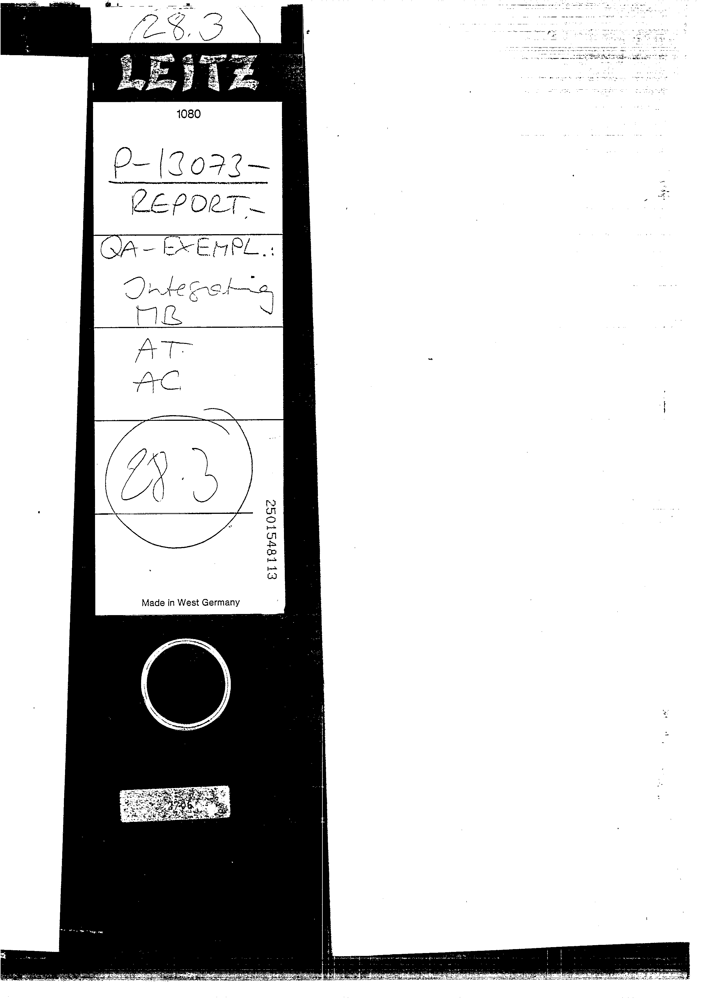 28.3
LEITZ
1080
P-13073-
REPORT.-
QA-EXEMPL.:
Integrating
MB
AT.
AC
28.3
2501548113
Made in West Germany